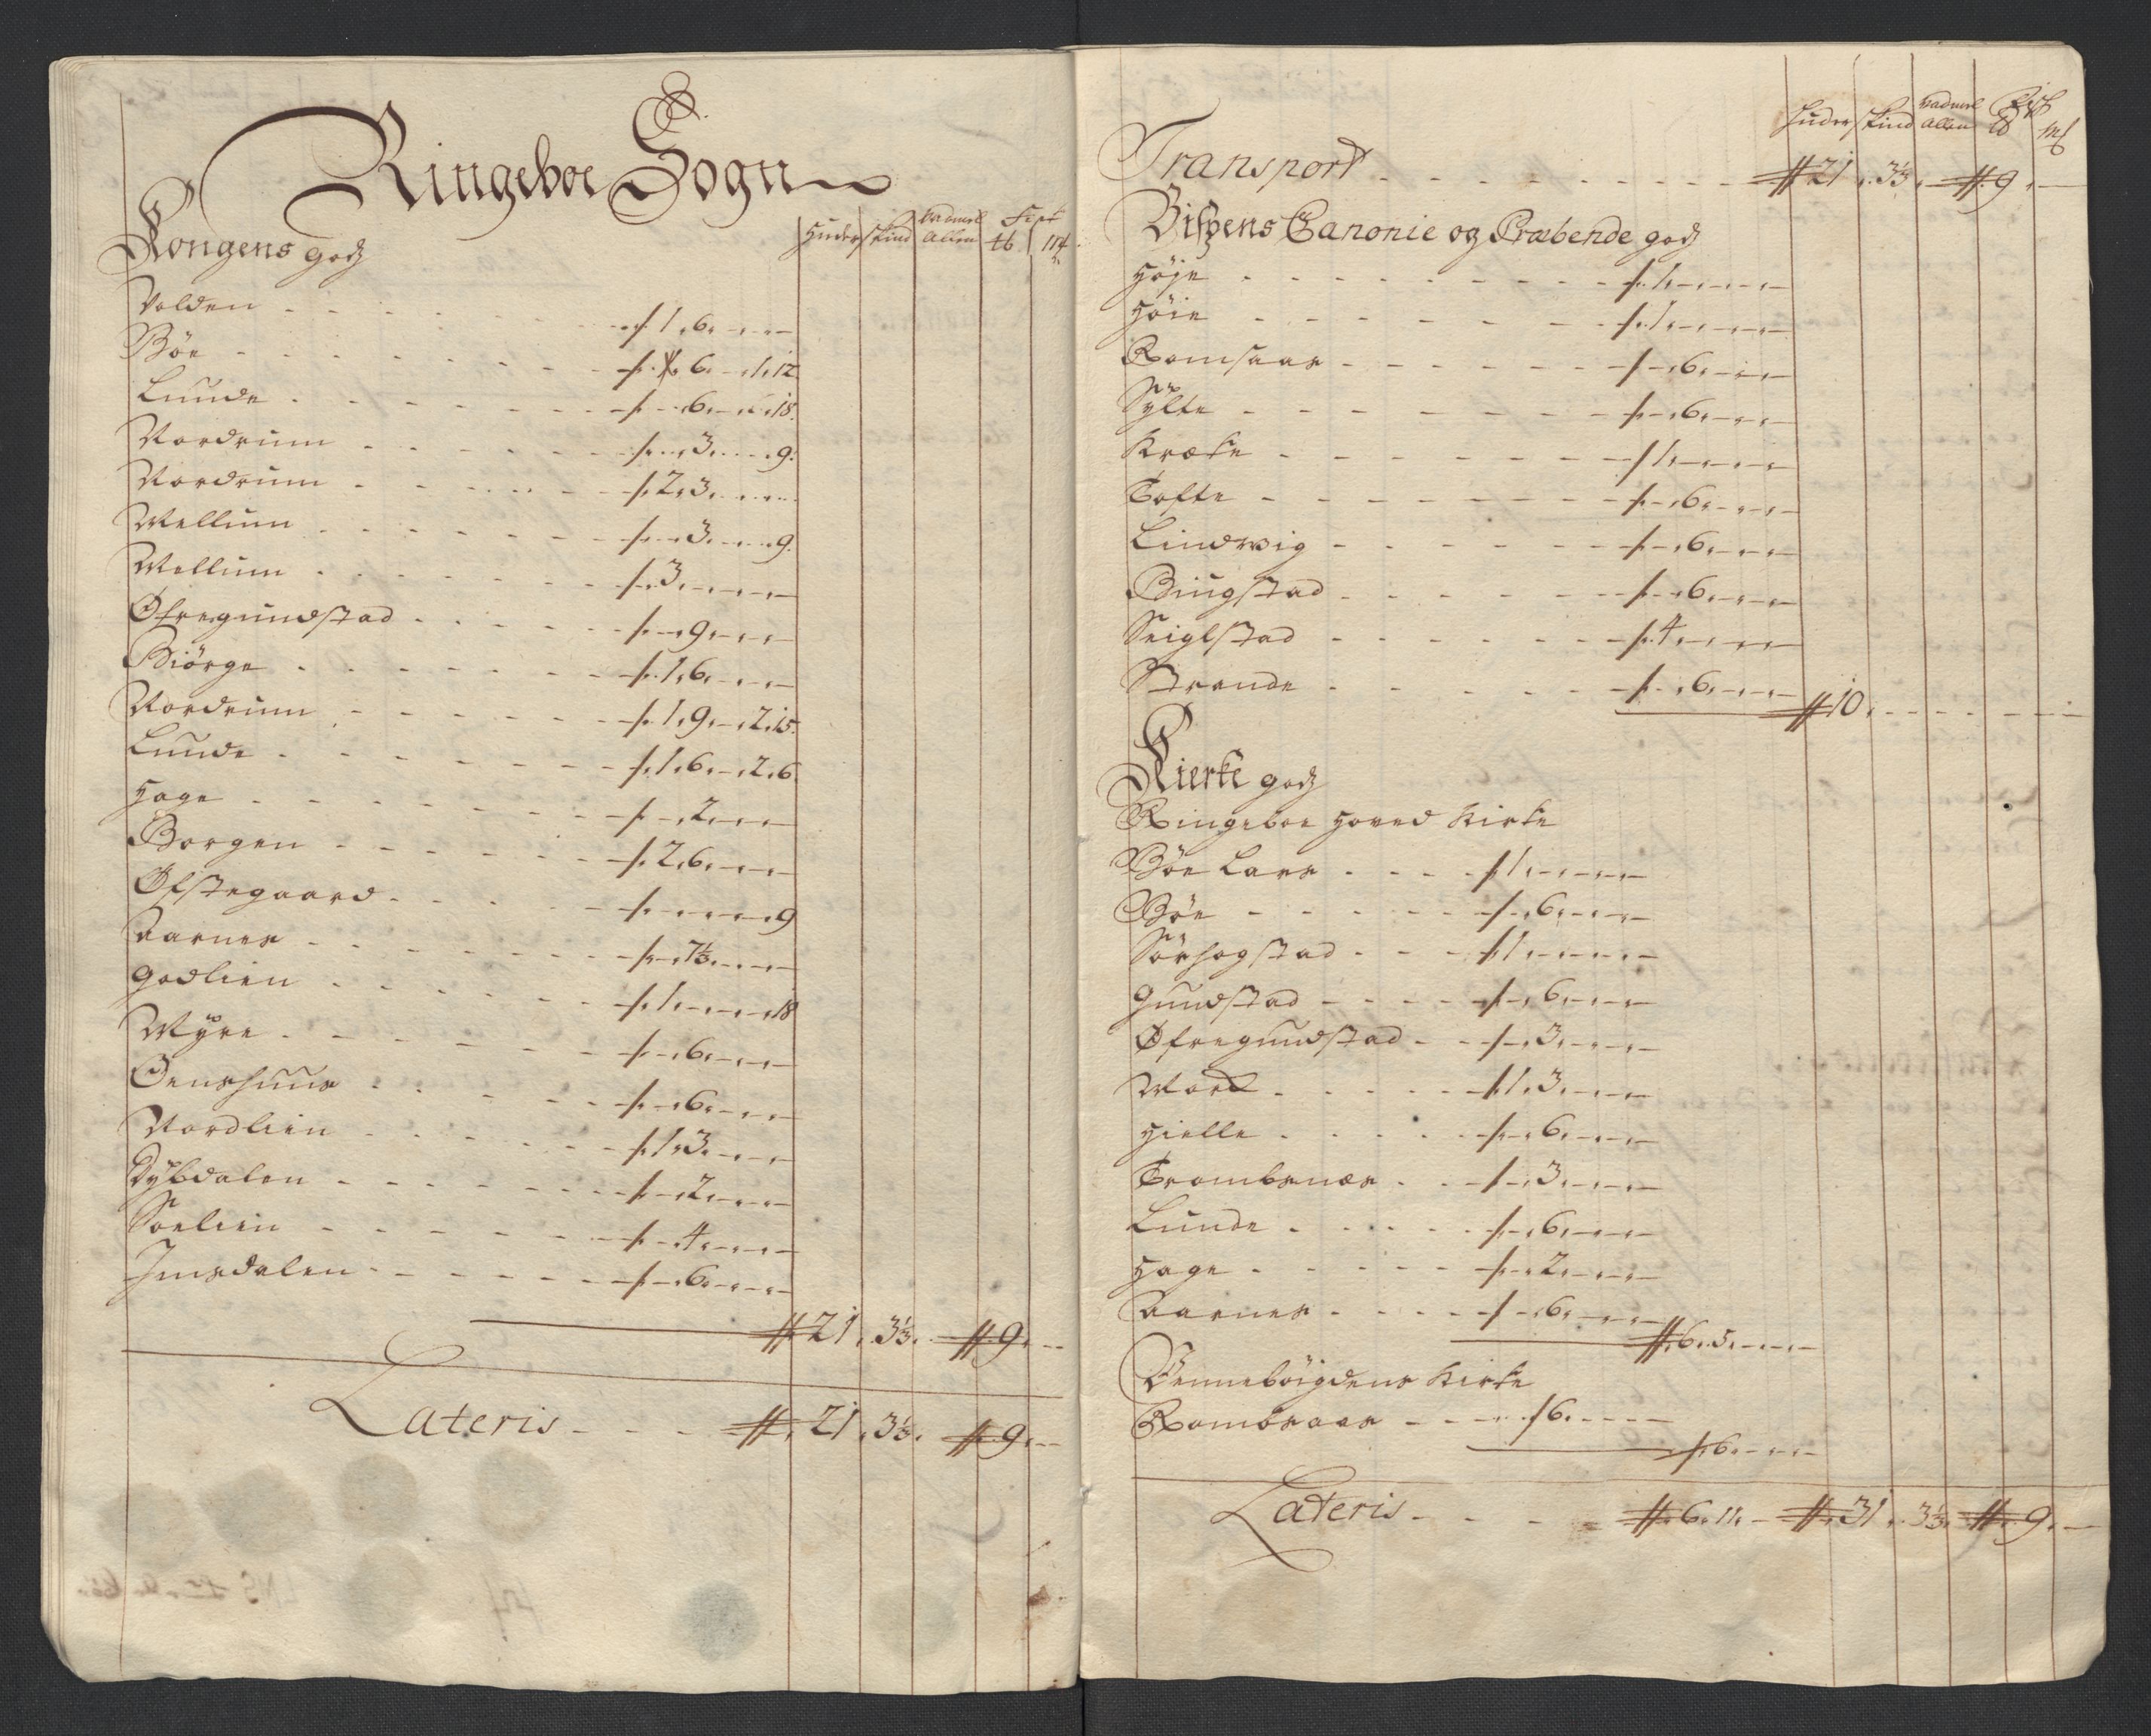 Ringeboe Sogn
Huder skind Vadmel Allen Fisk ℔ mk
Kongens godz
Volden - - - 1. 6. - - -
Böe - - - 6. - 1. 12
Lunde - - - 6. - 18.
Nordrum - - - 3. - - 9.
Nordrum - - - 2. 3. - - -
Mellum - - - 3. - - 9.
Mellum - - - 3. - - - -
Ofregundstad - - - 9. - - -
Biörge - - - 1. 6. - - -
Nordrum - - - 1. 9. - 2. 15.
Lunde - - - 1. 6. - 2. 6
Hage - - - 2. - - -
Borgen - - - 2. 6. - - -
Öfstegaard - - - - - - 9
Aarnes - - - 7⅓. - - -
Godlien - - - 1. - - - 18
Myre - - - 6. - - -
Oenshuus - - - 6. - - -
Nordlien - - - 1. 3. - - -
Dybdalen - - - 2. - - -
Soelien - - - 4. - - -
Imsdalen - - - 6. - - -
21. 3⅓. 9. -
Lateris - - - 21. 3⅓. 9. -
Huder skind Vadmel Allen Fisk ℔ mk
Transport - - - 21. 3⅓. - 9. -
Bispens Canonie og Præbende godz
Höje - - - 1. - - - -
Höie - - - 1. - - - -
Romsaas - - - 6. - - -
Sylte - - - 6. - - -
Kræke - - - 1. - - - -
Tofte - - - 6. - - -
Lindwig - - - 6. - - -
Biugstad - - - 6. - - -
Seiglstad - - - 4. - - - -
Strande - - - 6. - - -
10. - - - -
Kierke godz
Ringeboe Hoved Kirke
Böe Lars - - - 1. - - - -
Böe - - - 6. - - -
Sörhogstad - - - 1. - - - -
Gundstad - - - 6. - - -
Ofregundstad - - 3. - - -
Moe - - - 1. 3. - - -
Hielle - - - 6. - - -
Trombsnæs - - 3. - - -
Lunde - - - 6. - - -
Hage - - - 2. - - -
Aarnes - - - 6. - - -
6. 5. - - -
Venneböigdens Kirke
Rombsaas - - - 6. - - -
6. - - -
Lateris - - - 6. 11. - 31. 3⅓. 9. -